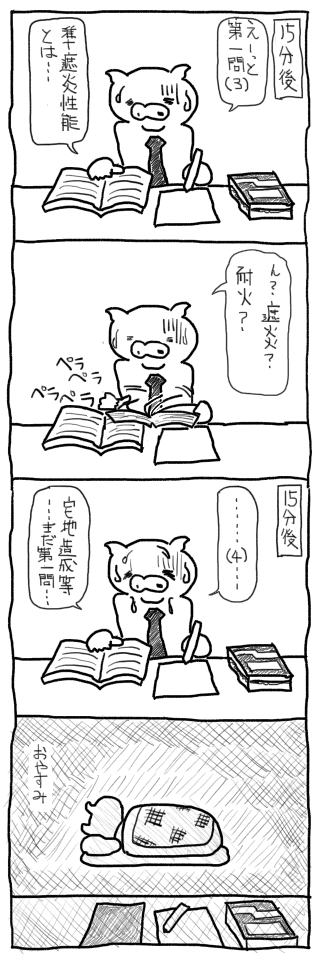 15分後
えーっと
第一問
(3)
準遮炎性能
とは・・・
ん？遮炎？
耐火？
ペラ
ペラ
ペラ
ペラ
15分後
・・・・・・・・
(4)・・・
宅地造成等
・・・まだ第一問・・・
おやすみ